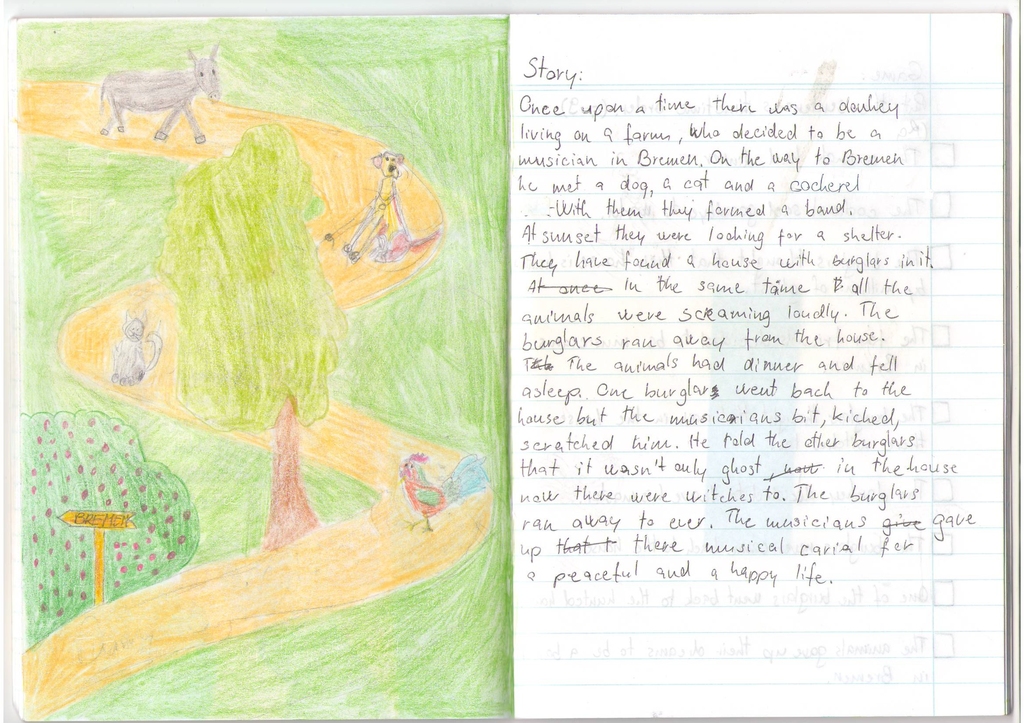 BREMEN
Story:
Once upon a time there was a donkey
living on a farm, who decided to be a
musician in Bremen. On the way to Bremen
he met a dog, a cat and a cockerel
.-With them they formed a band.
At sunset they were looking for a shelter.
They have found a house with burglars in it.
At once In the same time all the
animals were screaming loudly. The
burglars ran away from the house.
The animals had dinner and fell
asleep. One burglar went back to the
house but the musicians bit, kicked,
scratched him. He told the other burglars
that it wasn't only ghost, in the house
now there were witches to. The burglars
ran away to ever. The musicians give gave
up that there musical carial for
a peaceful and a happy life.